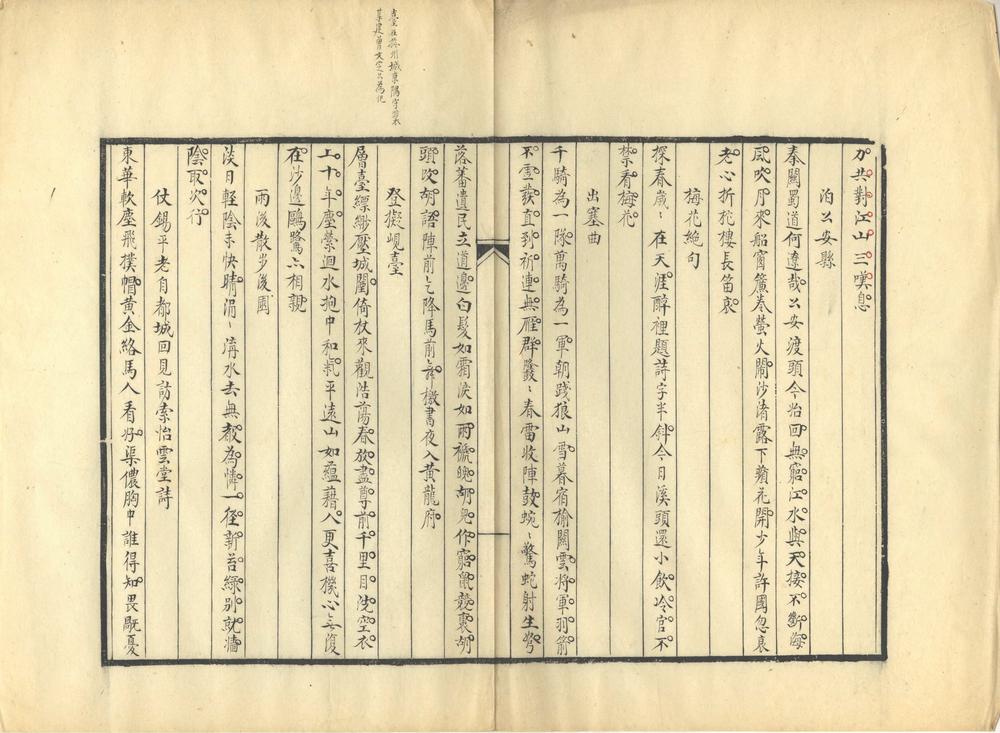 臺在撫州城東隅守裴
某建曾文定公為記
力共對江山三嘆息
泊公安縣
秦關蜀道何遼哉公安渡頭今始回無窮江水與天接不斷海
風吹月來船窗簾卷螢火鬧沙渚露下蘋花開少年許國忽衰
老心折柁樓長笛哀
梅花絕句
探春歲〻在天涯醉裡題詩字半斜今日溪頭還小飲冷官不
禁看梅花
出塞曲
千騎為一隊萬騎為一軍朝踐狼山雪暮宿榆關雲將軍羽箭
不虛發直到祈連無雁群隆〻春雷收陣鼓蜿〻驚蛇射生弩
落蕃遺民立道邊白髮如霜淚如雨褫魄胡兒作窮鼠競裹胡
頭改胡語陣前乞降馬前舞檄書夜入黃龍府
登擬峴臺
層臺縹緲壓城闉倚杖來觀浩蕩春放盡尊前千里目洗空衣
上十年塵縈迴水抱中和氣平遠山如蘊藉人更喜機心无復
在沙邊鷗鷺亦相親
雨後散步後園
淡日輕陰未快晴涓〻溝水去無聲為憐一徑新苔綠別就牆
陰取次行
仗錫平老自都城回見訪索怡雲堂詩
東華軟塵飛撲帽黃金絡馬人看好渠儂胸中誰得知畏厭憂